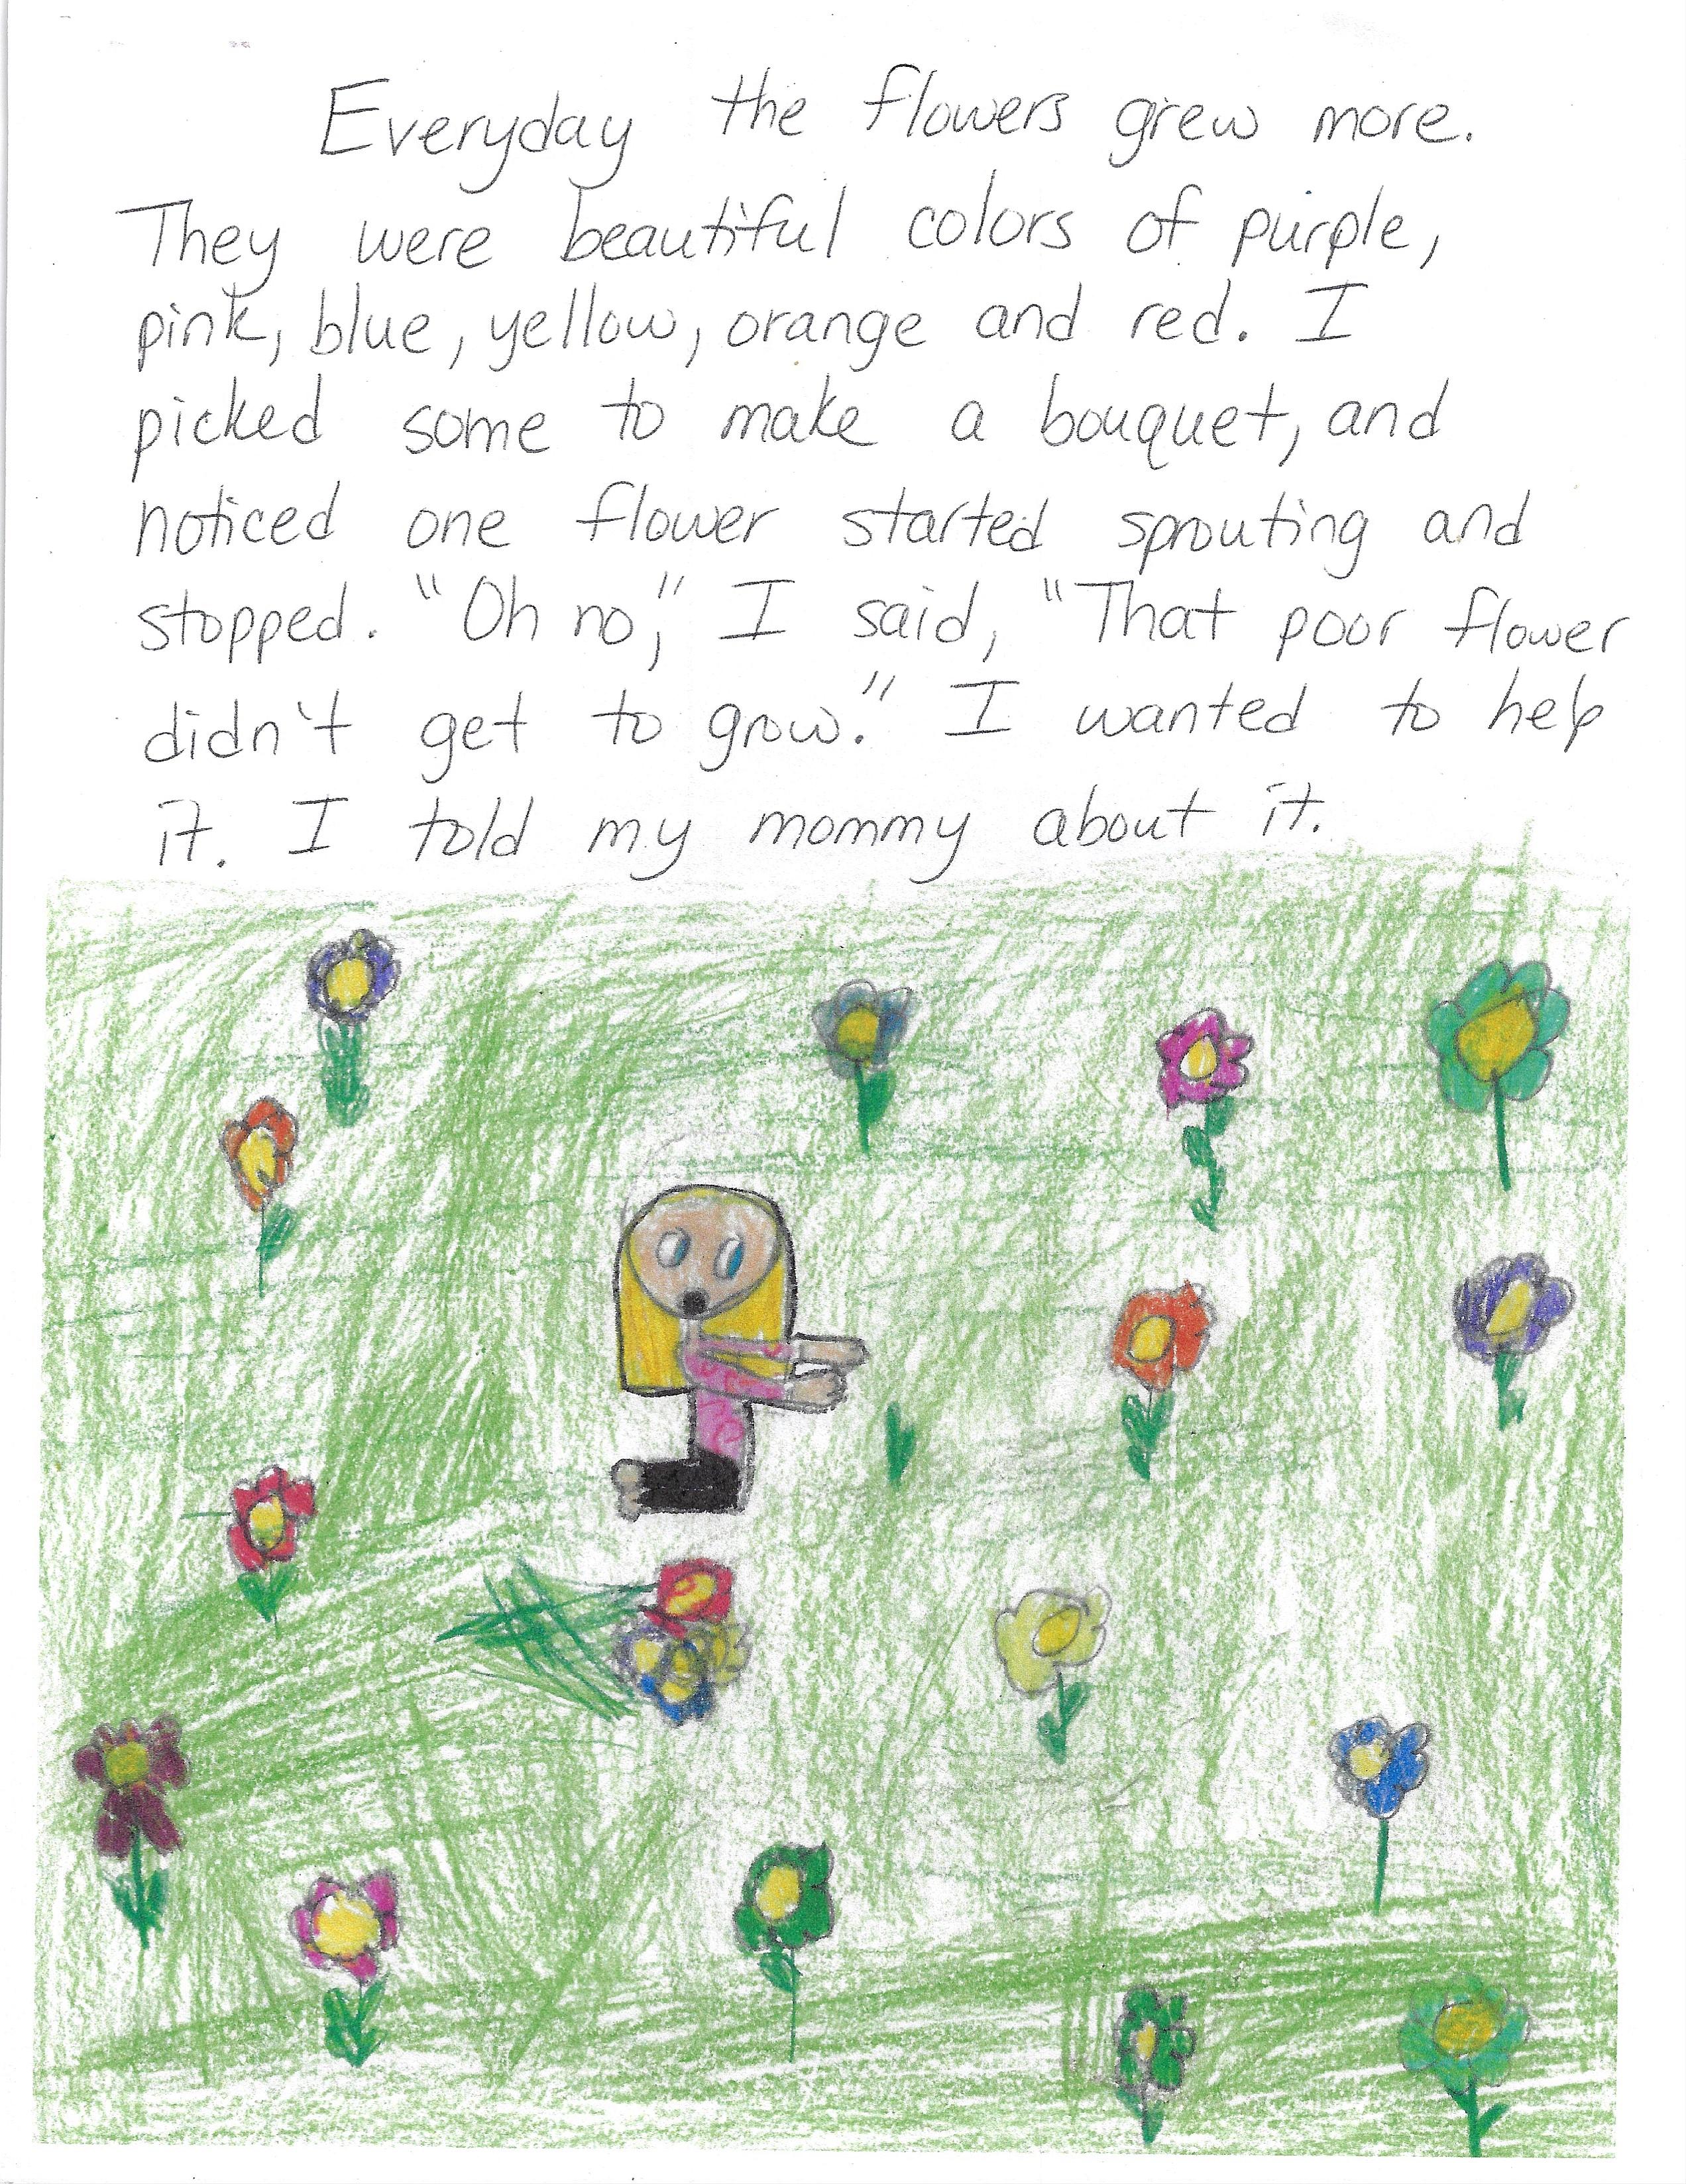 Everyday the flowers grew more.
They were beautiful colors of purple,
pink, blue, yellow, orange and red. I
picked some to make a bouquet, and
noticed one flower started sprouting and
stopped. "Oh no," I said, "That poor flower
didn't get to grow." I wanted to help
it. I told my mommy about it.